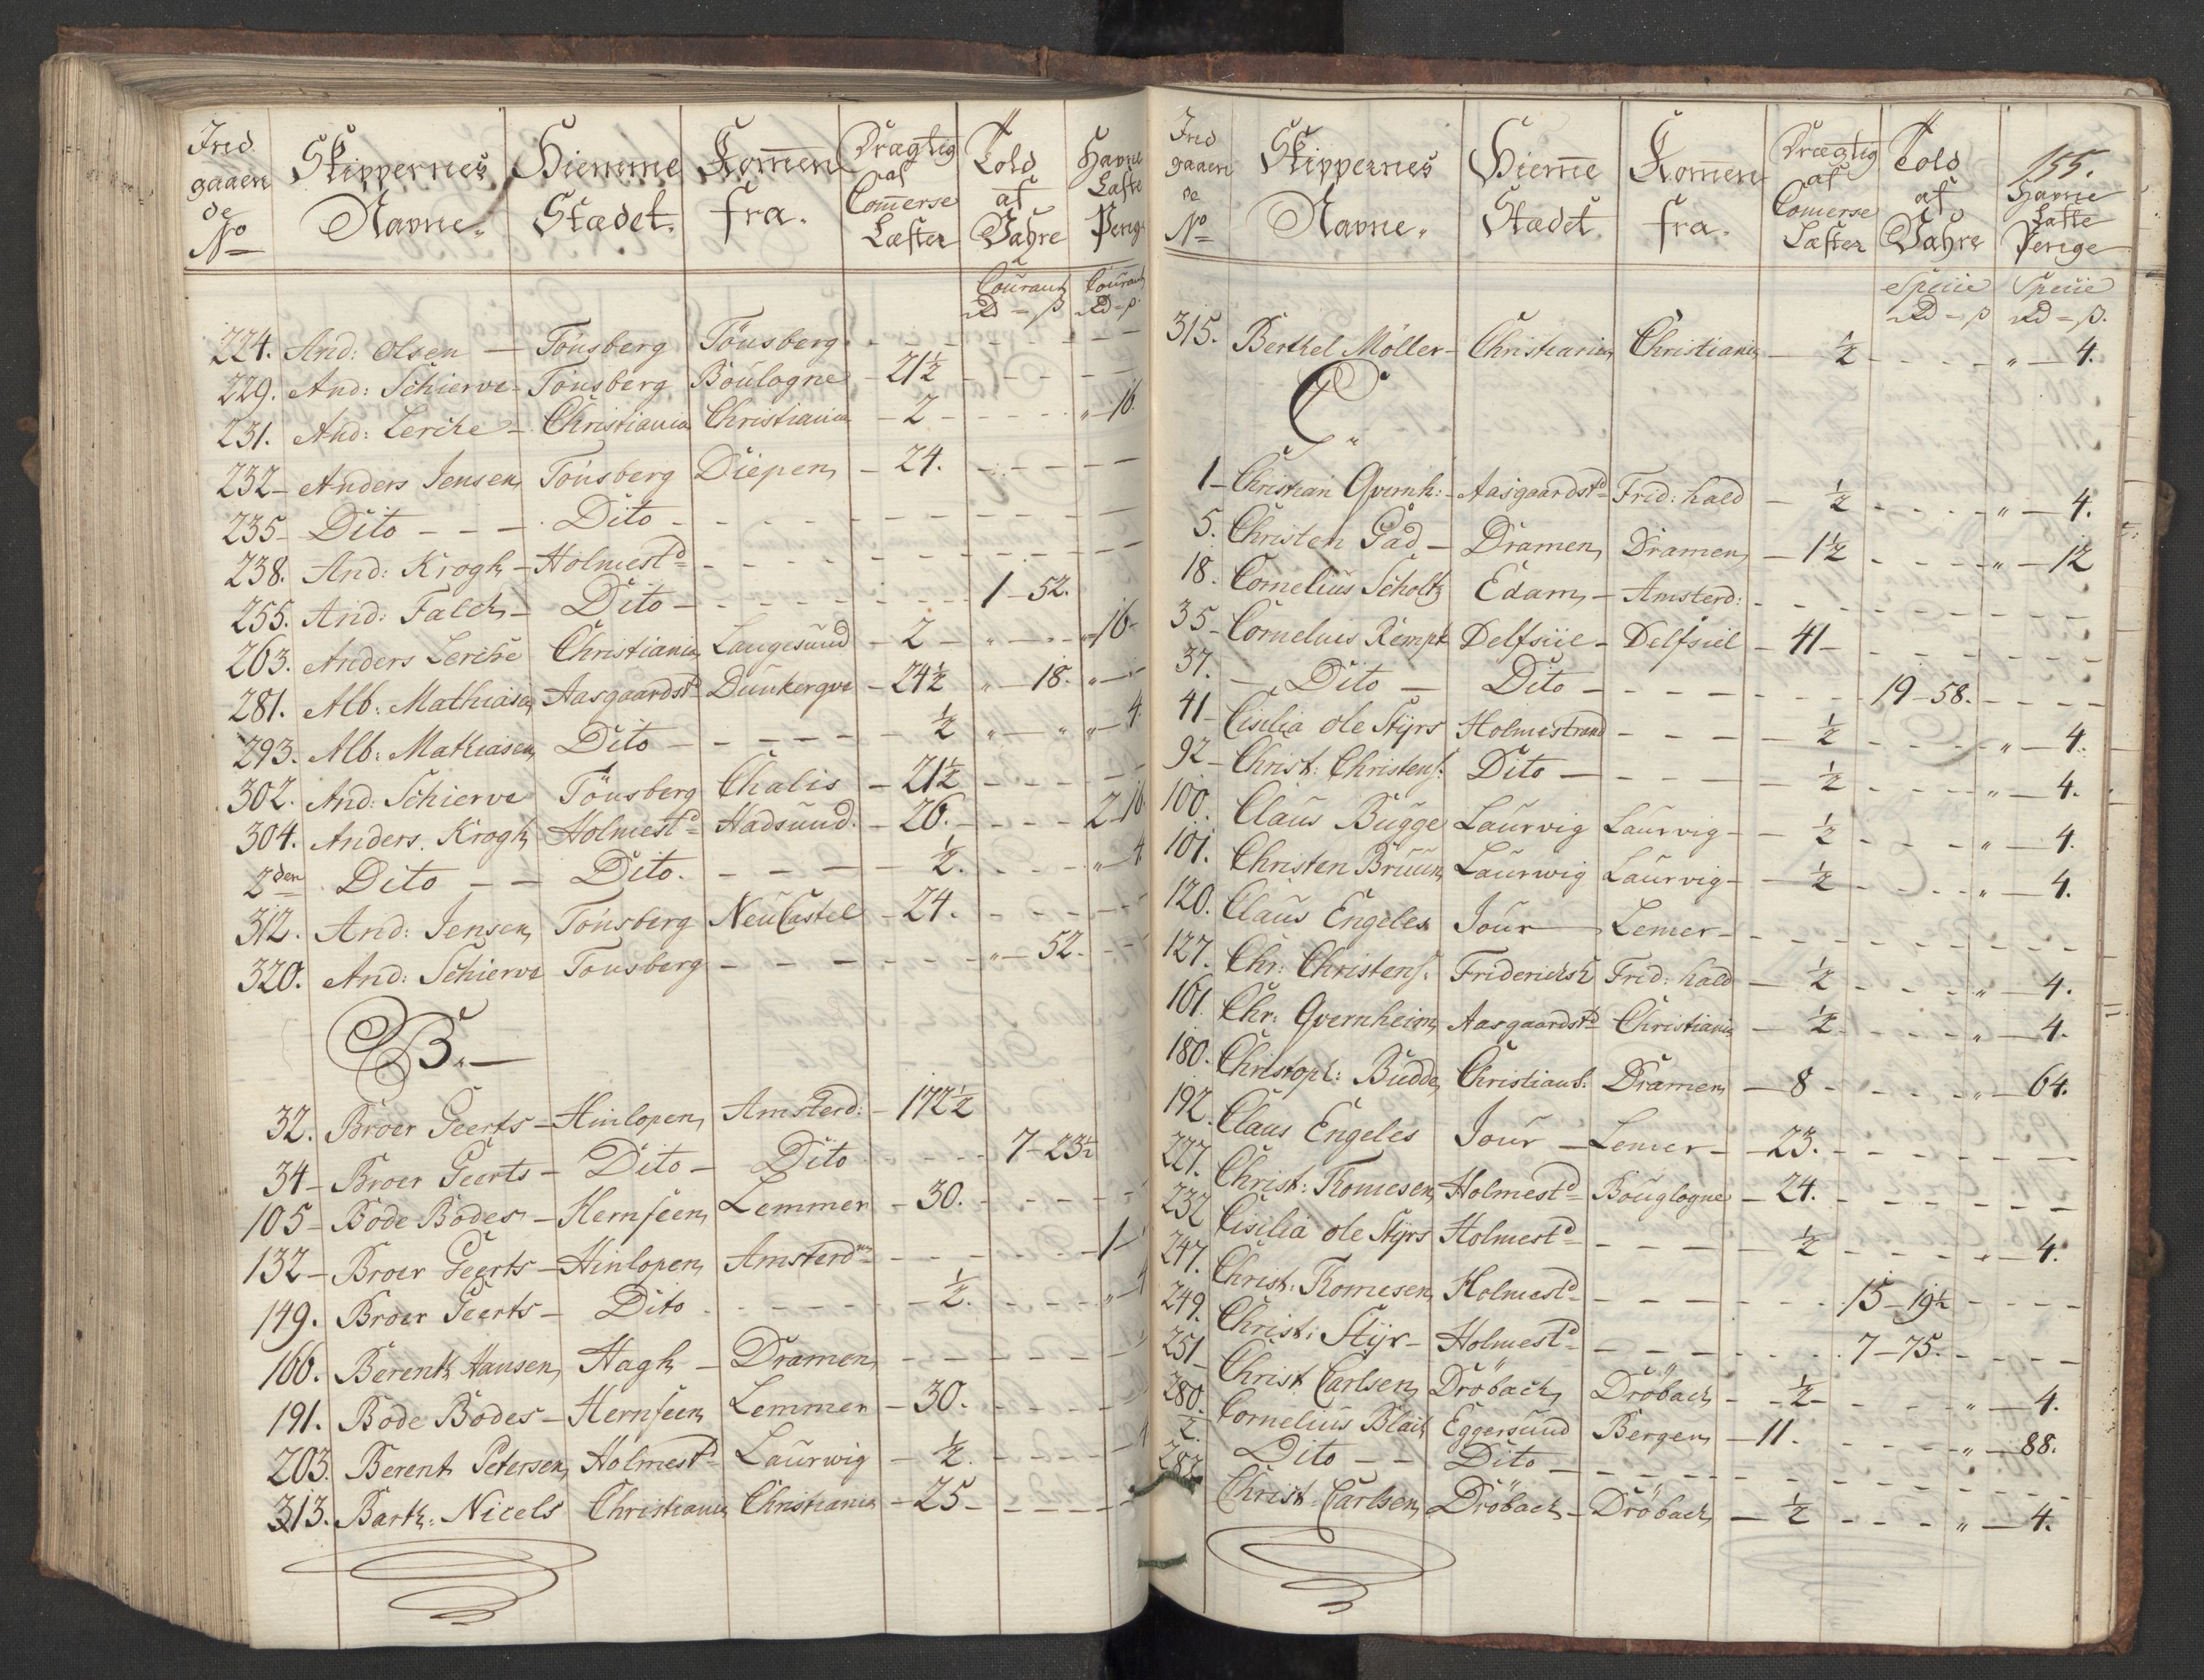 Ind gaaen de No | Skippernes Navne. | Hiemme Stædet. | Komen fra. | Drægtig af Comerse Læster | Told af Vahre | Havne Laste Penge
Courant Rd – ß | Courant Rd – ß
224. And: Olsen — Tönsberg Tönsberg - - - - -
229. And: Schierve - Tönsberg Boulogne - 21½ - - - -
231. And: Lerche - Christiania Christiania - 2 - - - - „ - 16.
232 - Anders Jensen Tönsberg Diepen - 24. - - - -
235 - Dito - - - Dito - - - - - -
238. And: Krogh - Holmestd - - - - - -
255. And: Falch - Dito - - - - - 1 - 52.
263. Anders Lerche Christiania Langesund - 2 - „ - - „ 16 -
281. Alb: Mathiasen Aasgaardstd Dunkerqve - 24½ „ - 18. „ -
293. Alb: Mathiasen Dito - - - - - ½ „ - „ „ - 4.
302. And: Schierve Tönsberg Chalis - 21½ - - - -
304. Anders Krogh Holmestd Hadsund. - 26. - - - - 2 - 16.
2den Dito - - Dito. - - - - ½. - - - „ - 4
312. And: Jensen Tönsberg NeuCastel - 24. - - - -
320. And: Schierve Tönsberg - - - - - „ - 52. - -
B. —
32. Broer Geerts - Hinlopen Amsterd: - 172½
34 - Broer Geerts - Dito - Dito - - - 7 - 23½
105 - Bode Bodes - Hernseen Lemmer - 30. - - - -
132 - Broer Geerts - Hinlopen Amsterdm - - - - - 1 -
149. Broer Geerts - Dito - - - - - ½. - - - „ - 4
166. Berent Hansen Hagh - Dramen - - - - -
191. Bode Bodes - Hernseen Lemmer - 30. - - - -
203. Berent Petersen Holmestd Laurwig - ½. - - - - 4
313. Barth: Nicels Christiania Christiania - 25 - - - -
155.
Ind gaaen de No | Skippernes Navne. | Hieme Stædet. | Komen fra. | Drægtig af Comerse Læster | Told af Vahre | Havne Laste Penge
Specie Rd – ß | Specie Rd – ß.
315. Berthel Möller - Christiania Christiania - ½ - - - - „ - 4.
C „
1 - Christian Qvernh: - Aasgaardstd Frid: hald - ½ - - - - „ - 4.
5. Christen Gad - Dramen Dramen - 1½ - - - - „ - 12
18. Cornelius Scholtz Edam - Amsterd: - - - - - -
35 - Cornelius Kempe Delfsiil - Delfsiel - 41 - - - - - -
37. - Dito - Dito - - - - - 19 - 58. - - - -
41 - Cisilia ole Styrs Holmestrand - - - - ½ - - - - „ - 4.
92 - Christ: Christens: Dito - - - - - ½ - - - - „ - 4.
100. Claus Bugge Laurvig Laurvig - - ½ - - - „ - 4.
101. Christen Bruun Laurwig Laurvig - - ½ - - - - „ - 4.
120. Claus Engeles Jour — Lemer - - - - - - -
127. Chr: Christens: Friderichsh Frid: hald - ½ - - - „ - 4.
161. Chr: Qvernheim Aasgaardstd Christiania - ½ - - - - „ - 4.
180. Christoph: Budde Christians: Dramen - 8 - - - - „ - 64.
192. Claus Engeles Jour - Lemer - - 23. - - - - -
227. Christ: Thomesen Holmestd Bouglogne - 24. - - - - -
232 Cisilia ole Styrs Holmestd - - - - ½ - - - - „ - 4.
247. Christ: Thomesen Holmestd - - - - - 15 - 19½ - - - -
249. Christ: Styr - Holmestd - - - - - 7 - 75. - - - -
251 - Christ Carlsen Dröbach Dröbach - - ½ - - - - „ - 4.
280. Cornelius Blach Eggersund Bergen - 11. - - - - „ - 88.
2. Dito - - Dito - - - - - - -
287 Christ: Carlsen Dröbach - Dröbach - ½ - - - „ - 4.